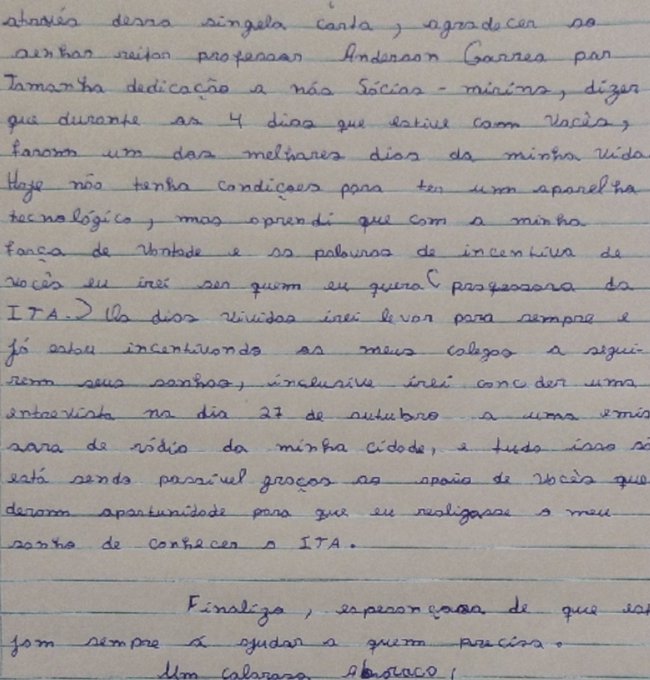 através dessa singela carta, agradecer ao
senhor reitor professor Anderson Correa por
Tamanha dedicação a nós Sócios-mirins, dizer
que durante os 4 dias que estive com vocês,
foram um dos melhores dias da minha vida.
Hoje não tenho condições para ter um aparelho
tecnológico, mas aprendi que com a minha
força de vontade e as palavras de incentivo de
vocês eu irei ser quem eu quero (professora do
ITA.) Os dias vividos irei levar para sempre e
já estou incentivando os meus colegas a segui-
rem seus sonhos, inclusive irei conceder uma
entrevista no dia 27 de outubro a uma emis
sora de rádio da minha cidade, e tudo isso só
está sendo possível graças ao apoio de vocês que
deram oportunidade para que eu realizasse o meu
sonho de conhecer o ITA.
Finalizo, esperançosa de que es
jam sempre a ajudar a quem precisa.
Um caloroso Abraço,